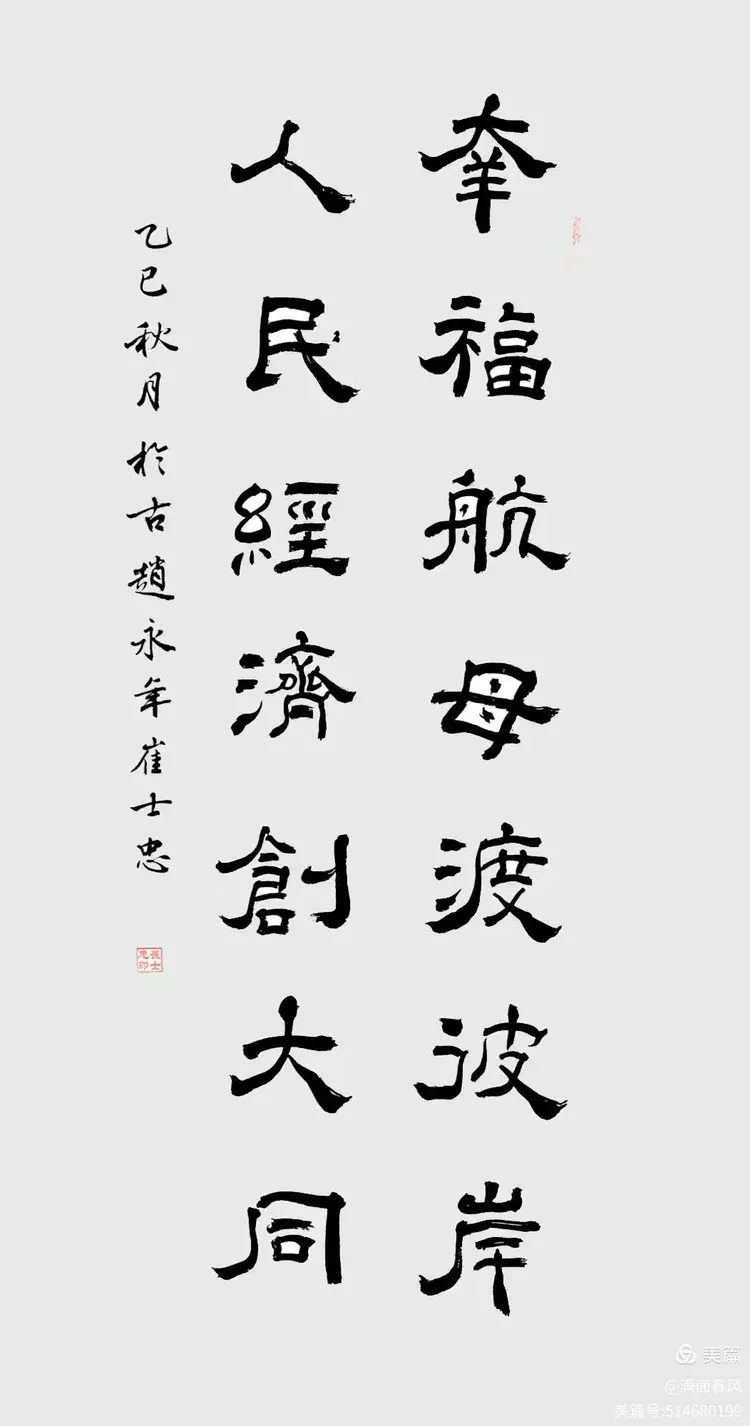 幸福航母渡彼岸
人民經濟創大同
乙巳秋月於古趙永年崔士忠
崔士忠印
美篇
@满面春风
美篇号:514680199